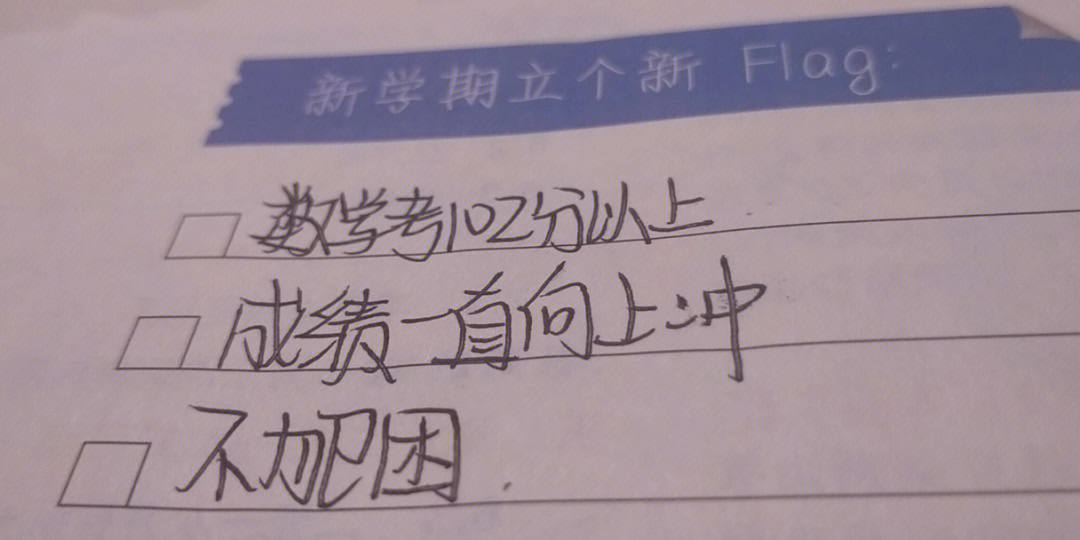 新学期立个新 Flag:
数学考102分以上
成绩一直向上冲
不加犯困.